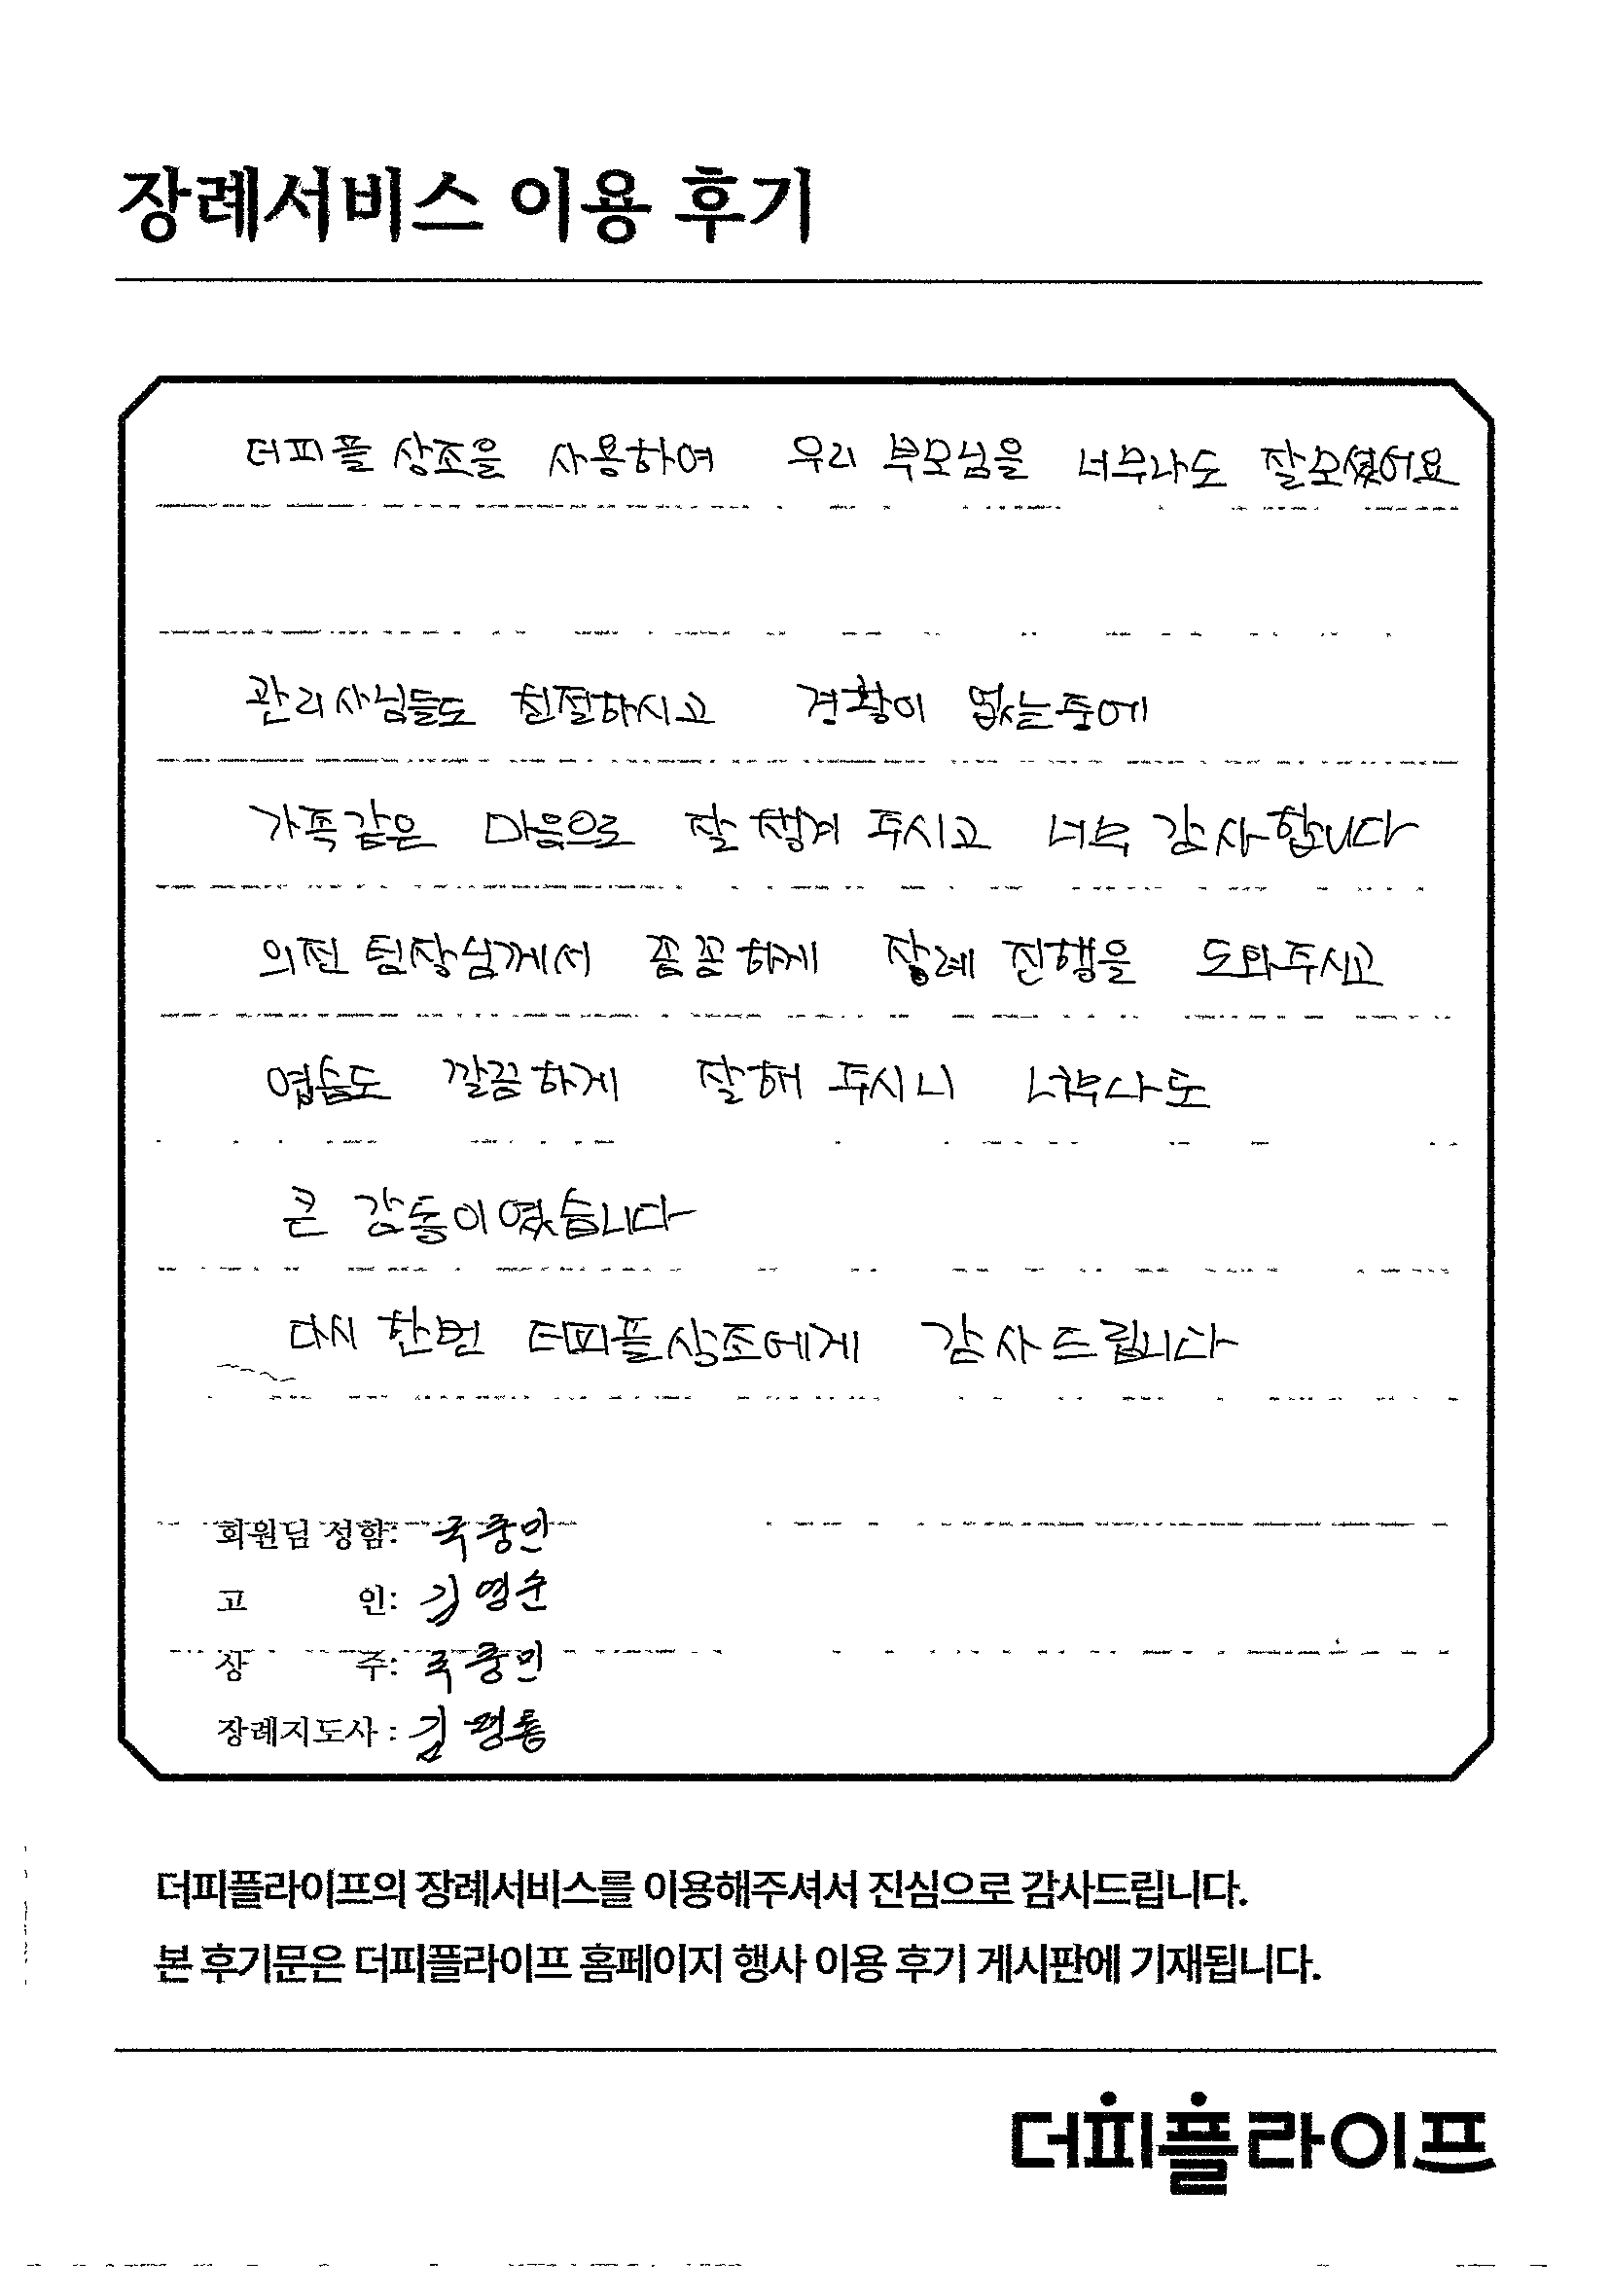 장례서비스 이용 후기
더피플 상조을 사용하여 우리 부모님을 너무나도 잘모셨어요
관리사님들도 친절하시고 경황이 없는중에
가족같은 마음으로 잘 챙겨 주시고 너무 감사합니다
의전 팀장님께서 꼼꼼하게 장례 진행을 도와주시고
염습도 깔끔하게 잘해 주시니 너무나도
큰 감동이였습니다
다시 한번 더피플상조에게 감사드립니다
회원님 성함: 국중민
고 인: 김영순
상 주: 국중민
장례지도사 : 김평통
더피플라이프의 장례서비스를 이용해주셔서 진심으로 감사드립니다.
본 후기문은 더피플라이프 홈페이지 행사 이용 후기 게시판에 기재됩니다.
더피플라이프